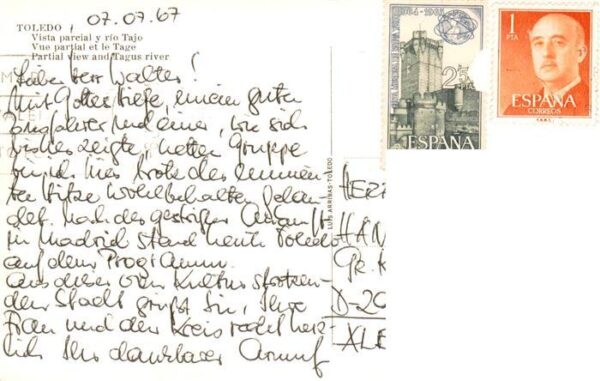 07.07.67
TOLEDO
Vista parcial y río Tajo
Vue partial et le Tage
Partial view and Tagus river
Lieber Herr Walter!
Mit Gottes Hilfe, einem guten
und einer, wie sich
bisher zeigte, netten Gruppe
bin ich hier trotz des
Hitze wohlbehalten gelan-
det. Nach der gestrigen Ankunft
in Madrid stand heute Toledo
auf dem Programm.
Aus dieser von Kultur strotzen-
den Stadt grüßt Sie, Ihre
Frau und den Kreis recht herz-
lich Ihr dankbarer
LUIS ARRIBAS-TOLEDO
ESPAÑA
1
PTA
ESPAÑA
CORREOS
HERR
D-20